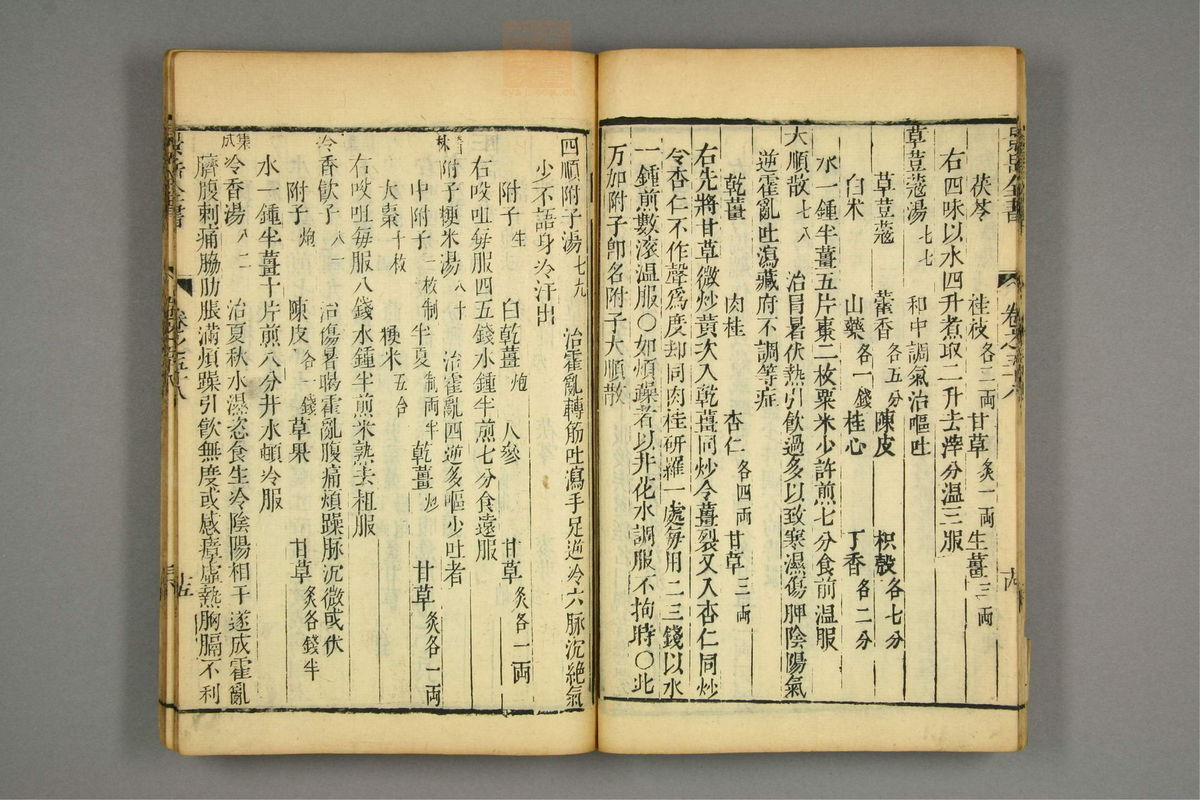 景岳全書 卷之五十八
茯苓 桂枝各二両 甘草炙一両 生薑三両
右四味以水四升煮取二升去滓分温三服
草荳蔻湯七七 和中調氣治嘔吐
草荳蔻 藿香各五分 陳皮 枳殼各七分
白术 山藥各一錢 桂心 丁香各二分
水一鍾半薑五片棗二枚粟米少許煎七分食前温服
大順散七八 治冒暑伏熱引飲過多以致寒濕傷脾陰陽氣
逆霍亂吐瀉藏府不調等症
乾薑 肉桂 杏仁各四両 甘草三両
右先將甘草微炒黃次入乾薑同炒令薑裂又入杏仁同炒
令杏仁不作聲爲度却同肉桂研羅一處每用二三錢以水
一鍾煎數滚温服〇如煩躁者以井花水調服不拘時〇此
方加附子即名附子大順散
四順附子湯七九 治霍亂轉筋吐瀉手足逆冷六脉沉絕氣
少不語身冷汗出
附子生 白乾薑炮 人參 甘草炙各一両
右㕮咀每服四五錢水鍾半煎七分食遠服
附子粳米湯八十 治霍亂四逆多嘔少吐者
中附子一枚制 半夏制両半 乾薑炮 甘草炙各一両
大棗十枚 粳米五合
右㕮咀每服八錢水鍾半煎米熟去柤服
冷香飲子八一 治傷暑暍霍亂腹痛煩躁脉沉微或伏
附子炮 陳皮各一錢 草果 甘草炙各錢半
水一鍾半薑十片煎八分井水頓冷服
集成冷香湯八二 治夏秋水濕恣食生冷陰陽相干遂成霍亂
臍腹刺痛脇肋脹滿煩躁引飲無度或感瘴虛熱胸膈不利
卷之五十八 十五